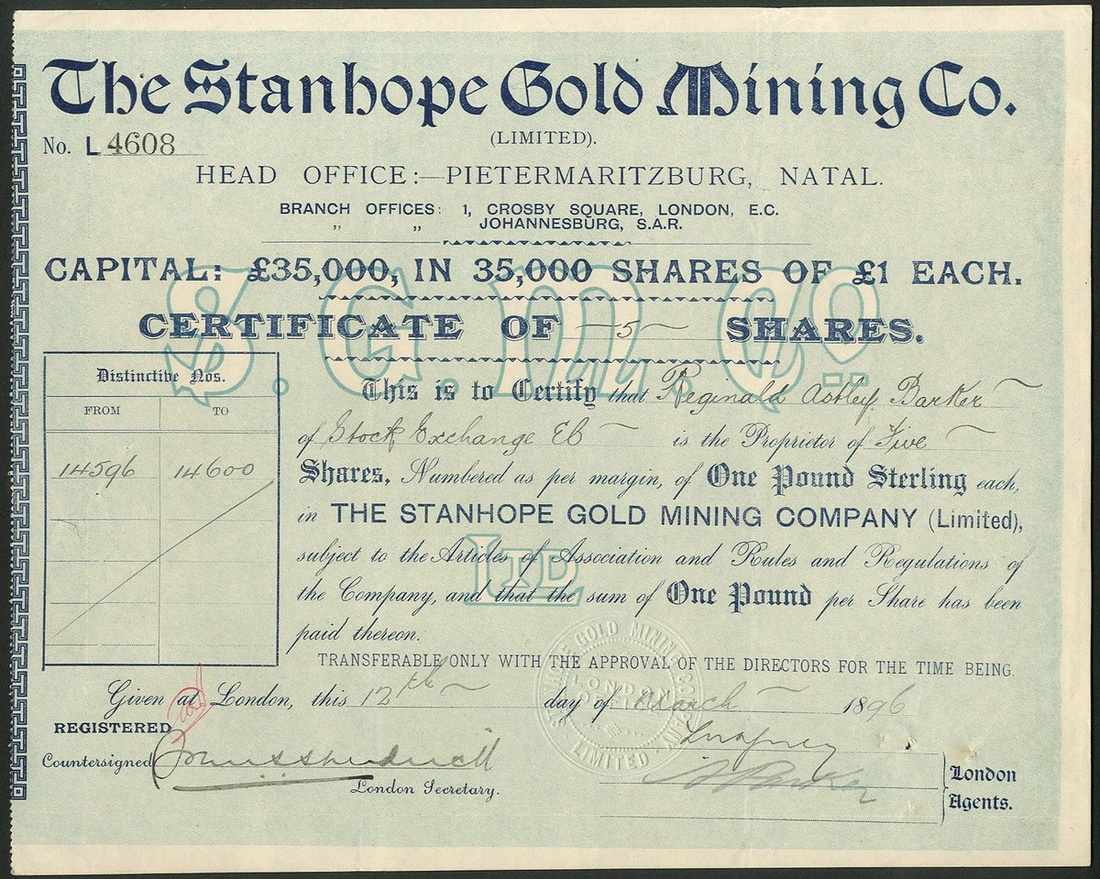 The Stanhope Gold Mining Co.
(LIMITED).
No. L 4608
HEAD OFFICE:—PIETERMARITZBURG, NATAL.
BRANCH OFFICES: 1, CROSBY SQUARE, LONDON, E.C.
„ „ JOHANNESBURG, S.A.R.
CAPITAL: £35,000, IN 35,000 SHARES OF £1 EACH.
S. G. M. Co.
CERTIFICATE OF —5— SHARES.
Distinctive Nos.
FROM TO
14596 14600
This is to Certify that Reginald Astley Barker
of Stock Exchange EC is the Proprietor of Five
Shares, Numbered as per margin, of One Pound Sterling each,
in THE STANHOPE GOLD MINING COMPANY (Limited),
subject to the Articles of Association and Rules and Regulations of
LTD
the Company, and that the sum of One Pound per Share has been
paid thereon.
TRANSFERABLE ONLY WITH THE APPROVAL OF THE DIRECTORS FOR THE TIME BEING.
Given at London, this 12th day of March 1896
REGISTERED
Countersigned
London Secretary.
London
Agents.
GOLD MINING
LONDON
LIMITED